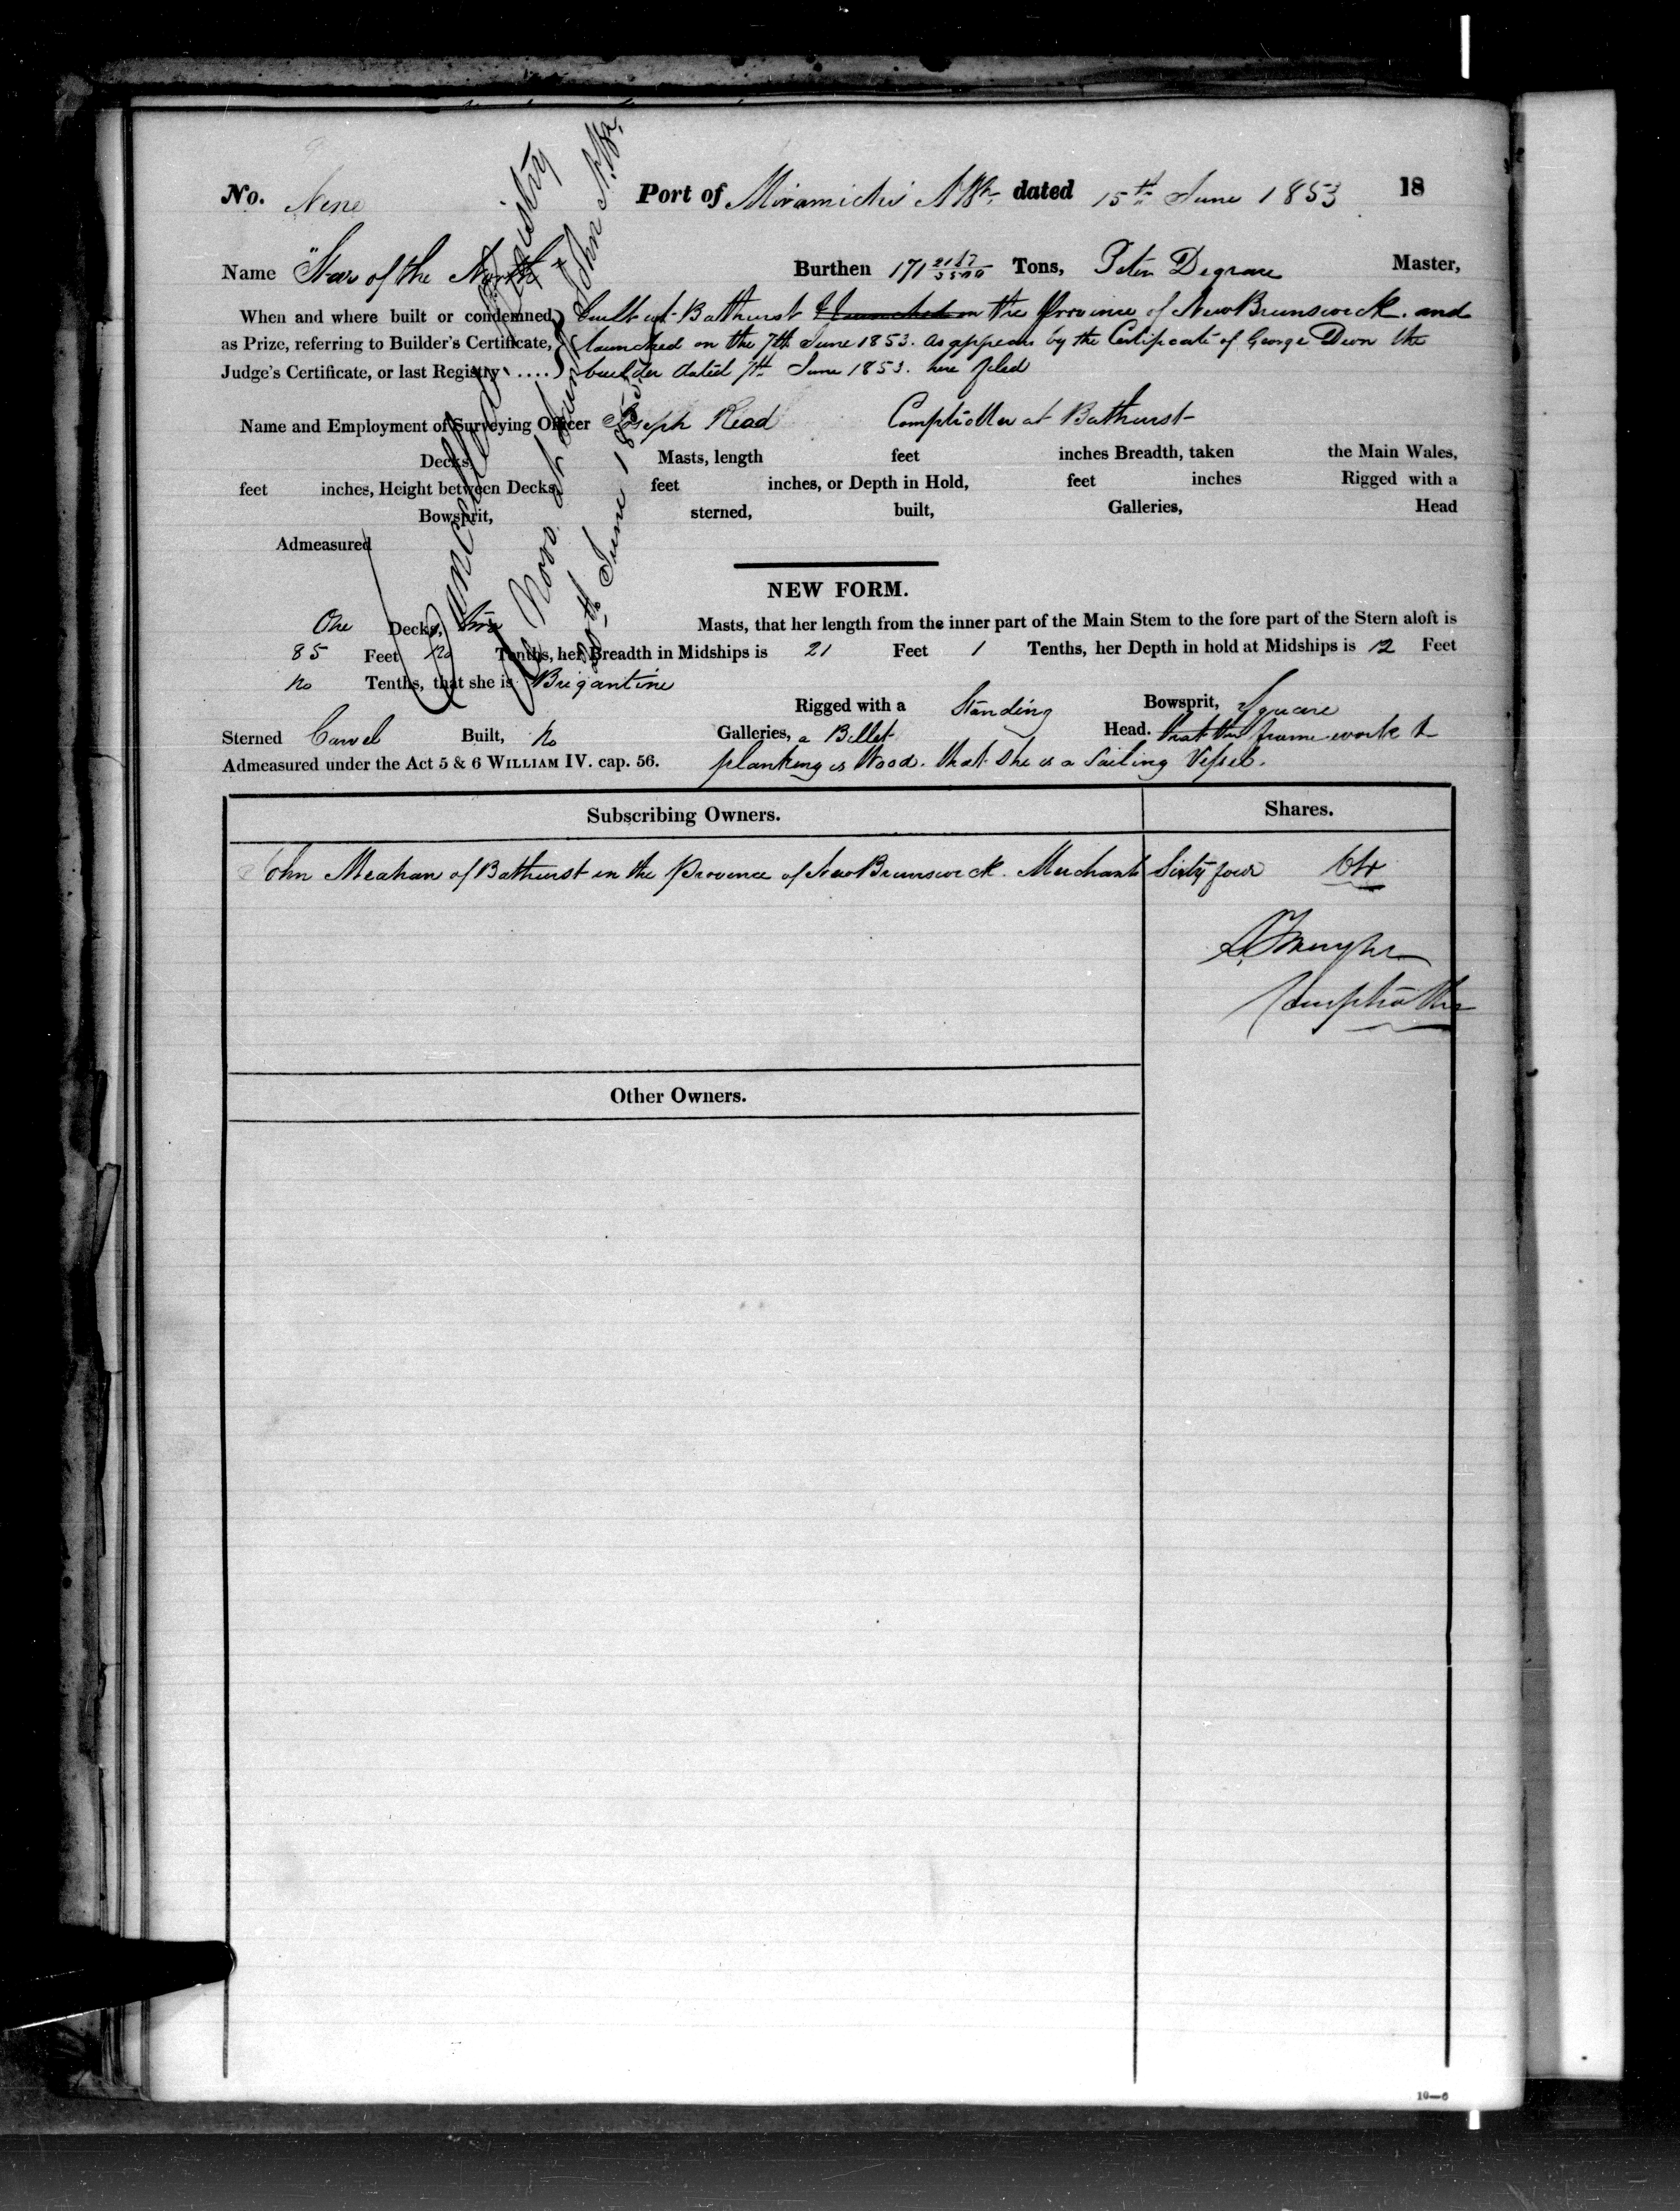 No. Nine Port of Miramichi NBk dated 15th June 1853 18
Name "Star of the North" Burthen 171 2167/3500 Tons, Peter Degrace Master,
When and where built or condemned built at Bathurst & launched in the Province of New Brunswick. and
as Prize, referring to Builder's Certificate, launched on the 7th June 1853. as appears by the Certificate of George Dunn the
Judge's Certificate, or last Registry ..... builder dated 7th June 1853. here filed
Name and Employment of Surveying Officer Joseph Read Comptroller at Bathurst
Decks, Masts, length feet inches Breadth, taken the Main Wales,
feet inches, Height between Decks, feet inches, or Depth in Hold, feet inches Rigged with a
Bowsprit, sterned, built, Galleries, Head
Admeasured
Cancelled Registry
de Novo at Saint John N.Bk.
20th June 1855
NEW FORM.
One Decks, Two Masts, that her length from the inner part of the Main Stem to the fore part of the Stern aloft is
85 Feet no Tenths, her Breadth in Midships is 21 Feet 1 Tenths, her Depth in hold at Midships is 12 Feet
no Tenths, that she is Brigantine
Rigged with a Standing Bowsprit, Square
Sterned Carvel Built, no Galleries, a Billet Head. that the frame work &
Admeasured under the Act 5 & 6 WILLIAM IV. cap. 56. planking is Wood. that She is a Sailing Vessel.
Subscribing Owners. Shares.
John Meahan of Bathurst in the Province of New Brunswick. Merchant Sixty four 64
Comptroller
Other Owners.
10—6